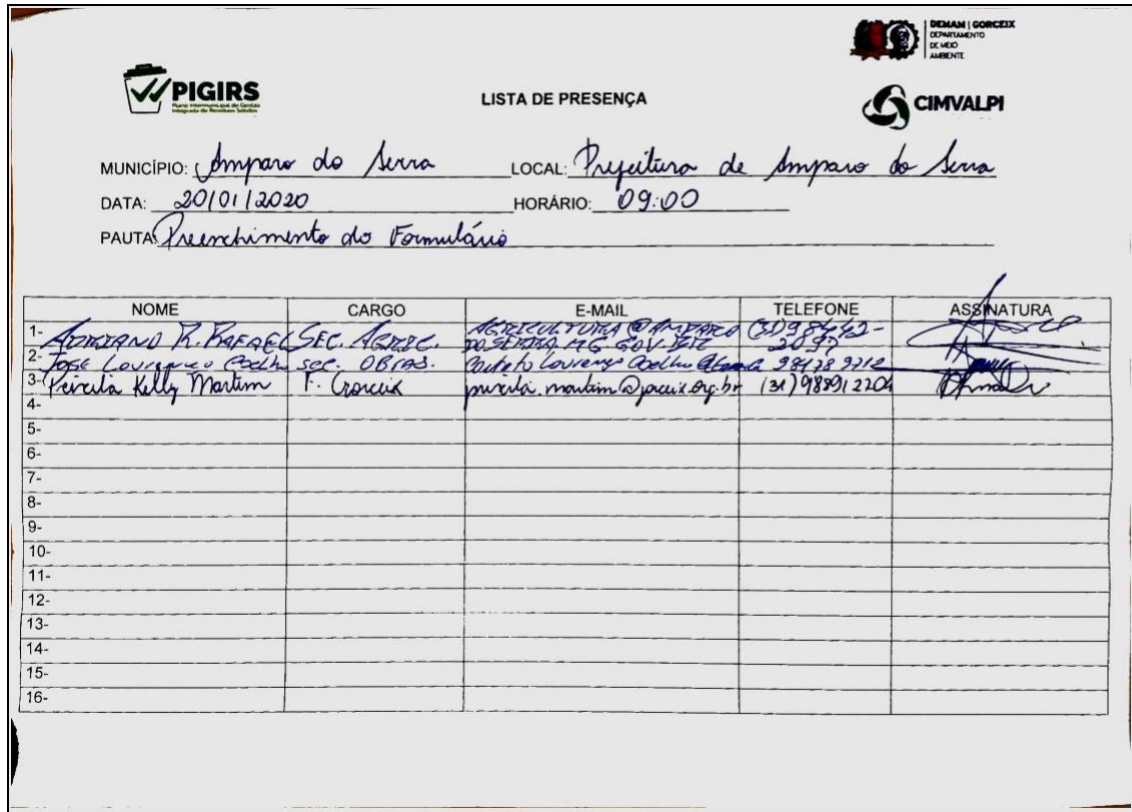 DEMAM | GORCEIX
DEPARTAMENTO
DE MEIO
AMBIENTE
PIGIRS
Plano Intermunicipal de Gestão
Integrada de Resíduos Sólidos
LISTA DE PRESENÇA
CIMVALPI
MUNICÍPIO: Amparo do Serra LOCAL: Prefeitura de Amparo do Serra
DATA: 20/01/2020 HORÁRIO: 09:00
PAUTA: Preenchimento do Formulário
NOME CARGO E-MAIL TELEFONE ASSINATURA
1- ADRIANO R. RAFAEL SEC. AGRIC. AGRICULTURA@AMPARO (31)98442-
DOSERRA.MG.GOV.BR
2- José Lourenço Coelho sec. OBRAS. Lourenço Coelho
3- Priscila Kelly Martim F. Gorceix priscila.martim@gorceix.org.br (31) 988912204
4-
5-
6-
7-
8-
9-
10-
11-
12-
13-
14-
15-
16-